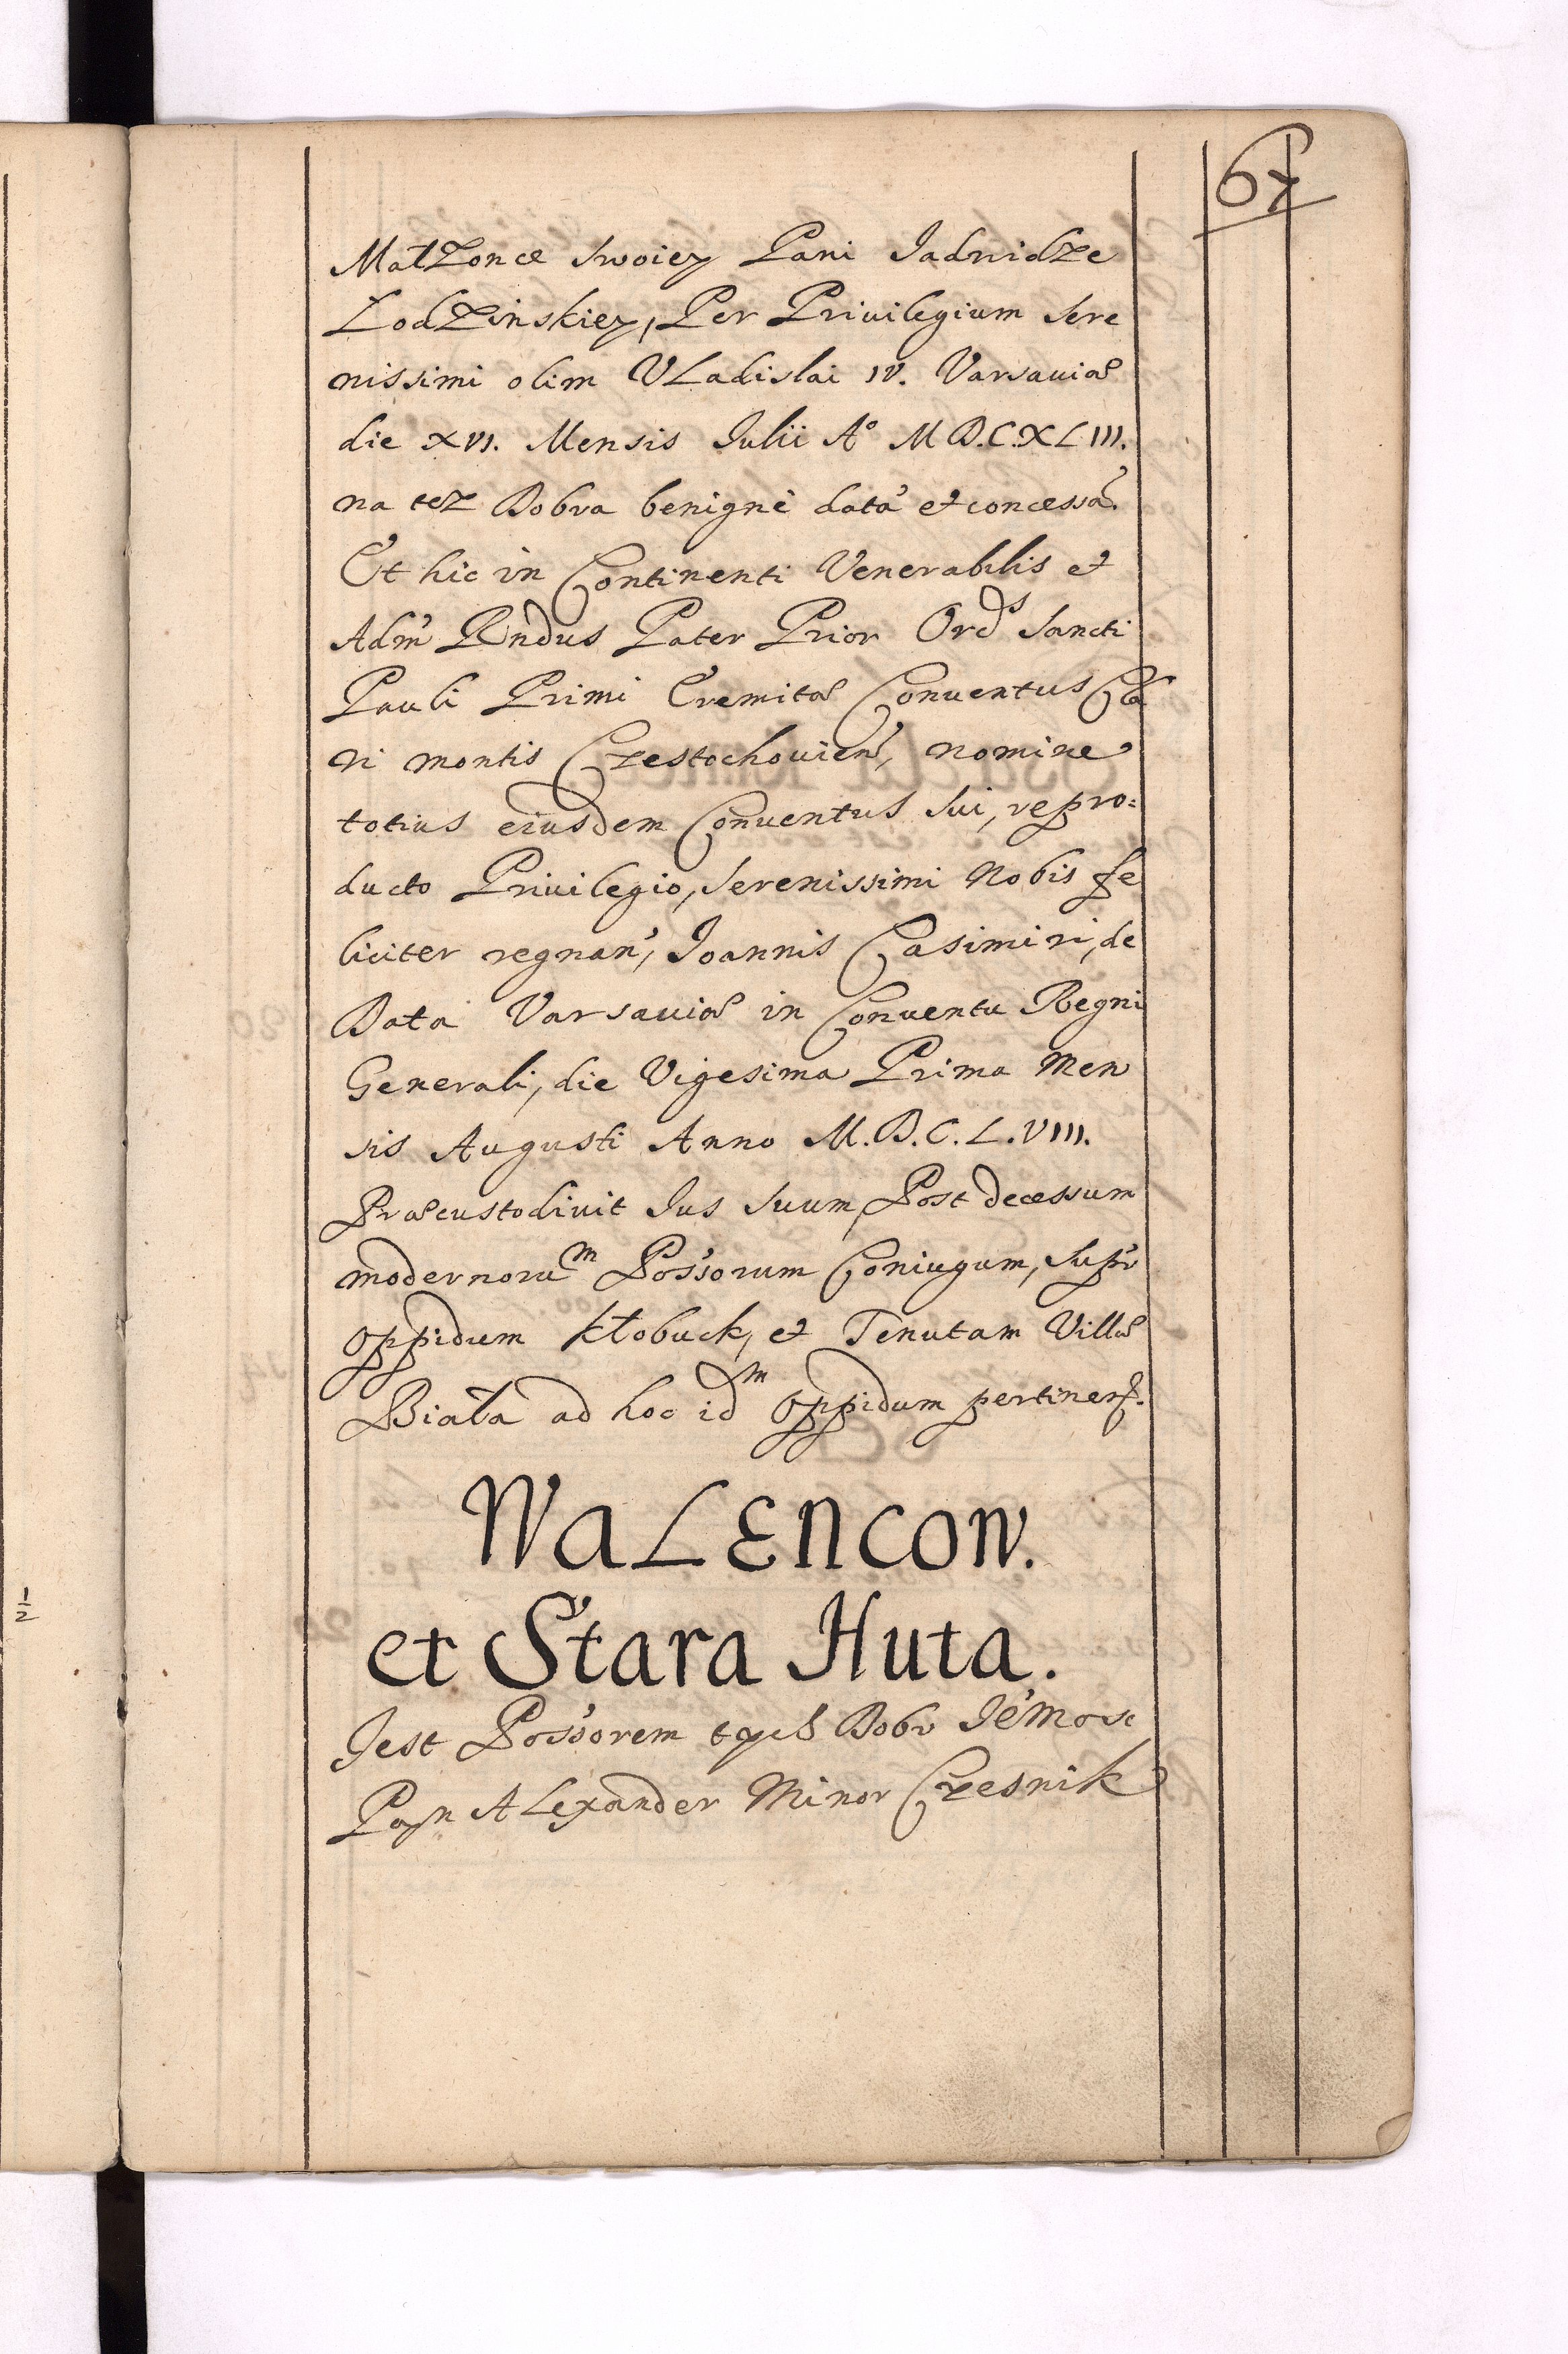 67
Małżonce swoiey Pani Jadwidze
Łodzinskiey, Per Privilegium Sere
nissimi olim Vladislai IV. Varsaviæ
die XVI. Mensis Julii A° M.D.C.XLIII.
na też Dobra benignè datá et concessá.
Et hic in Continenti Venerabilis et
Adm̃ Rndus Pater Prior Ords Sancti
Pauli Primi Eremitæ Conuentus Cla
ri montis Czestochouien, nomine
totius eiusdem Conuentus sui, repro=
ducto Priuilegio, Serenissimi Nobis fe
liciter regnan, Joannis Casimiri, de
Data Varsauiæ in Conuentu Regni
Generali, die Vigesima Prima Men
sis Augusti Anno M.D.C.L.VIII.
Præcustodiuit Jus Suum, Post decessum
modernoru͏ͫ Possorum Coniugum, Supr
oppidum Kłobuck, et Tenutam Villæ
Biała ad hoc idͫ oppidum pertinen.
WALENCOW.
et Stara Huta.
Jest Possorem tych Dobr JeMosc
Pan Alexander Minor Czesnik
1/2